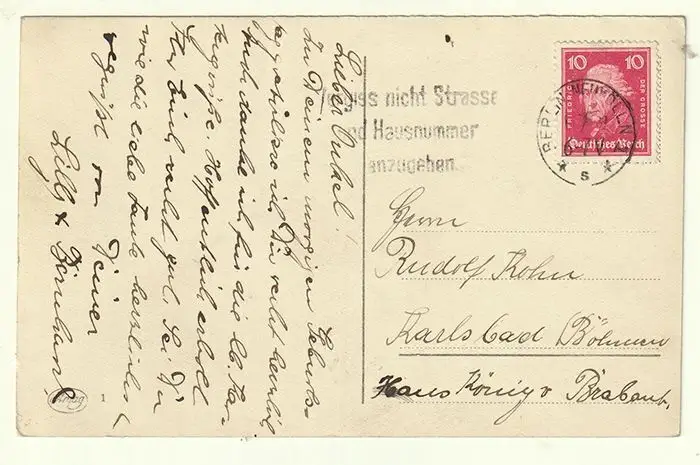 Lieber Onkel!
Zu Deinem morgigen Geburts-
gratuliere ich Dir recht herzlich
Auch danke ich für die lb. Kar-
Hoffentlich erholt
Ihr Euch recht gut. Sei Du
wie die liebe Tante herzlichst
gegrüßt von Deiner
Lilly &
Vergiss nicht Strasse
und Hausnummer
anzugeben
10 10
FRIEDRICH DER GROSSE
Deutsches Reich
BERLIN-NEUKÖLLN
* S *
Herrn
Rudolf Kohn
Karlsbad Böhmen
Haus König v Brabant.
1